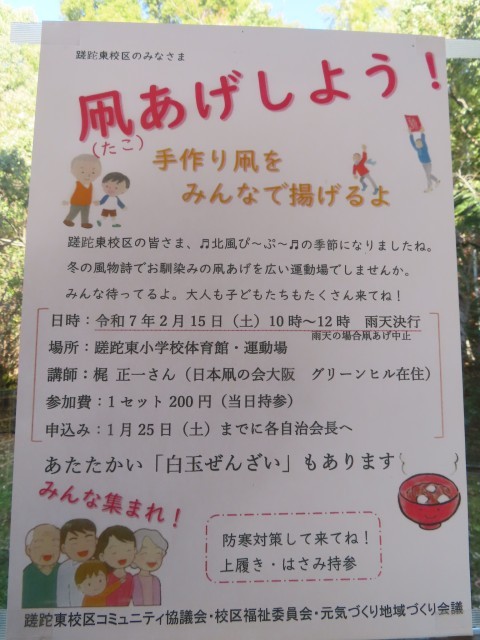 蹉跎東校区のみなさま
凧あげしよう！
(たこ)
手作り凧を
みんなで揚げるよ
蹉跎東校区の皆さま、♬北風ぴ～ぷ～♬の季節になりましたね。
冬の風物詩でお馴染みの凧あげを広い運動場でしませんか。
みんな待ってるよ。大人も子どもたちもたくさん来てね！
日時：令和７年２月15日（土）10時～12時　雨天決行
雨天の場合凧あげ中止
場所：蹉跎東小学校体育館・運動場
講師：梶 正一さん（日本凧の会大阪　グリーンヒル在住）
参加費：１セット200円（当日持参）
申込み：１月25日（土）までに各自治会長へ
あたたかい「白玉ぜんざい」もあります
みんな集まれ！
防寒対策して来てね！
上履き・はさみ持参
蹉跎東校区コミュニティ協議会・校区福祉委員会・元気づくり地域づくり会議